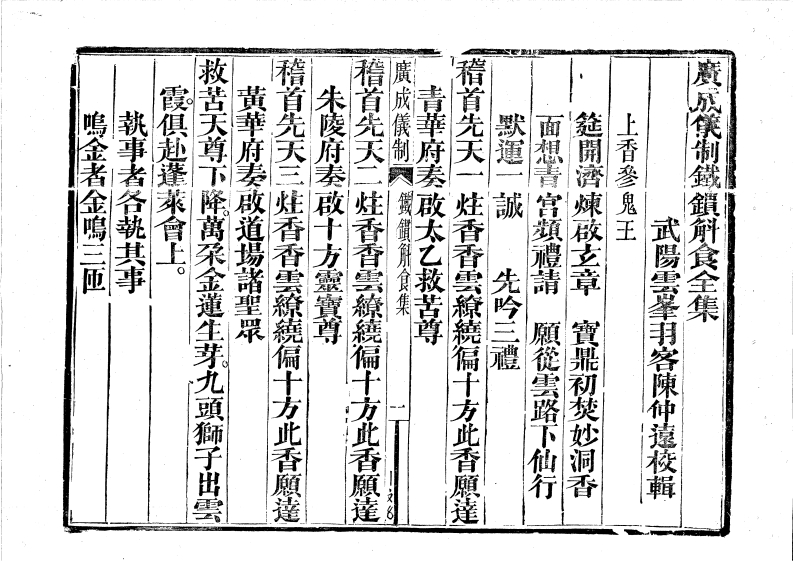 廣成儀制鐵鎖斛食全集
武陽雲峯羽客陳仲遠校輯
上香參鬼王
筵開濟煉啟玄章　寶鼎初焚妙洞香
面想青宮頻禮請　願從雲路下仙行
默運一誠　先吟三禮
稽首先天一炷香香雲繚繞徧十方此香願達
青華府奏啟太乙救苦尊
廣成儀制　鐵鎖斛食集　一
稽首先天二炷香香雲繚繞徧十方此香願達
朱陵府奏啟十方靈寶尊
稽首先天三炷香香雲繚繞徧十方此香願達
黃華府奏啟道場諸聖眾
救苦天尊下降。萬朶金蓮生芽。九頭獅子出雲
霞。俱赴蓬萊會上。
執事者各執其事
鳴金者金鳴三匝